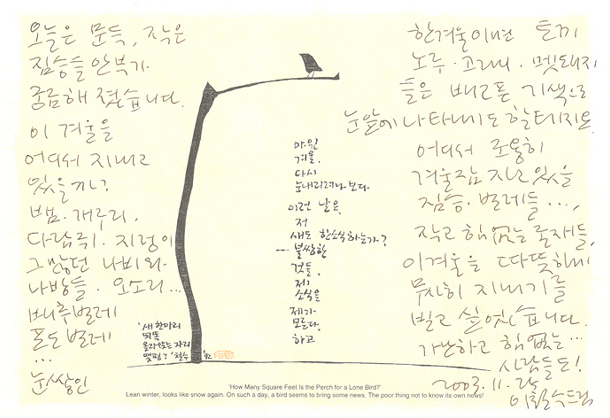 오늘은 문득, 작은
짐승들 안부가
궁금해 졌습니다.
이 겨울을
어디서 지내고
있을까?
뱀. 개구리.
다람쥐. 지렁이
그 많던 나비와
나방들. 오소리...
배추벌레
...
눈 쌓인
한겨울이면 토끼
노루. 고라니. 멧돼지
들은 배고픈 기색으로
눈앞에 나타나도 할테지요.
어디서 조용히
겨울잠 자고 있을
짐승. 벌레들...,
작고 힘없는 존재들,
이 겨울을 따뜻하게
무사히 지내기를
빌고 싶었습니다.
가난하고 힘없는...
사람들도!
2003.11.25
이철수 드림
마른
겨울.
다시
눈 내리려나 보다.
이런 날은,
저
새도 한소식 하는가?
--불쌍한
것들.
제
소식을
제가
모른다.
하고
'새 한마리
올라앉은 자리
몇 평?' 철수
'How Many Square Feet Is the Perch for a Lone Bird?'
Lean winter, looks like snow again. On such a day, a bird seems to bring some news. The poor thing not to know its own news!